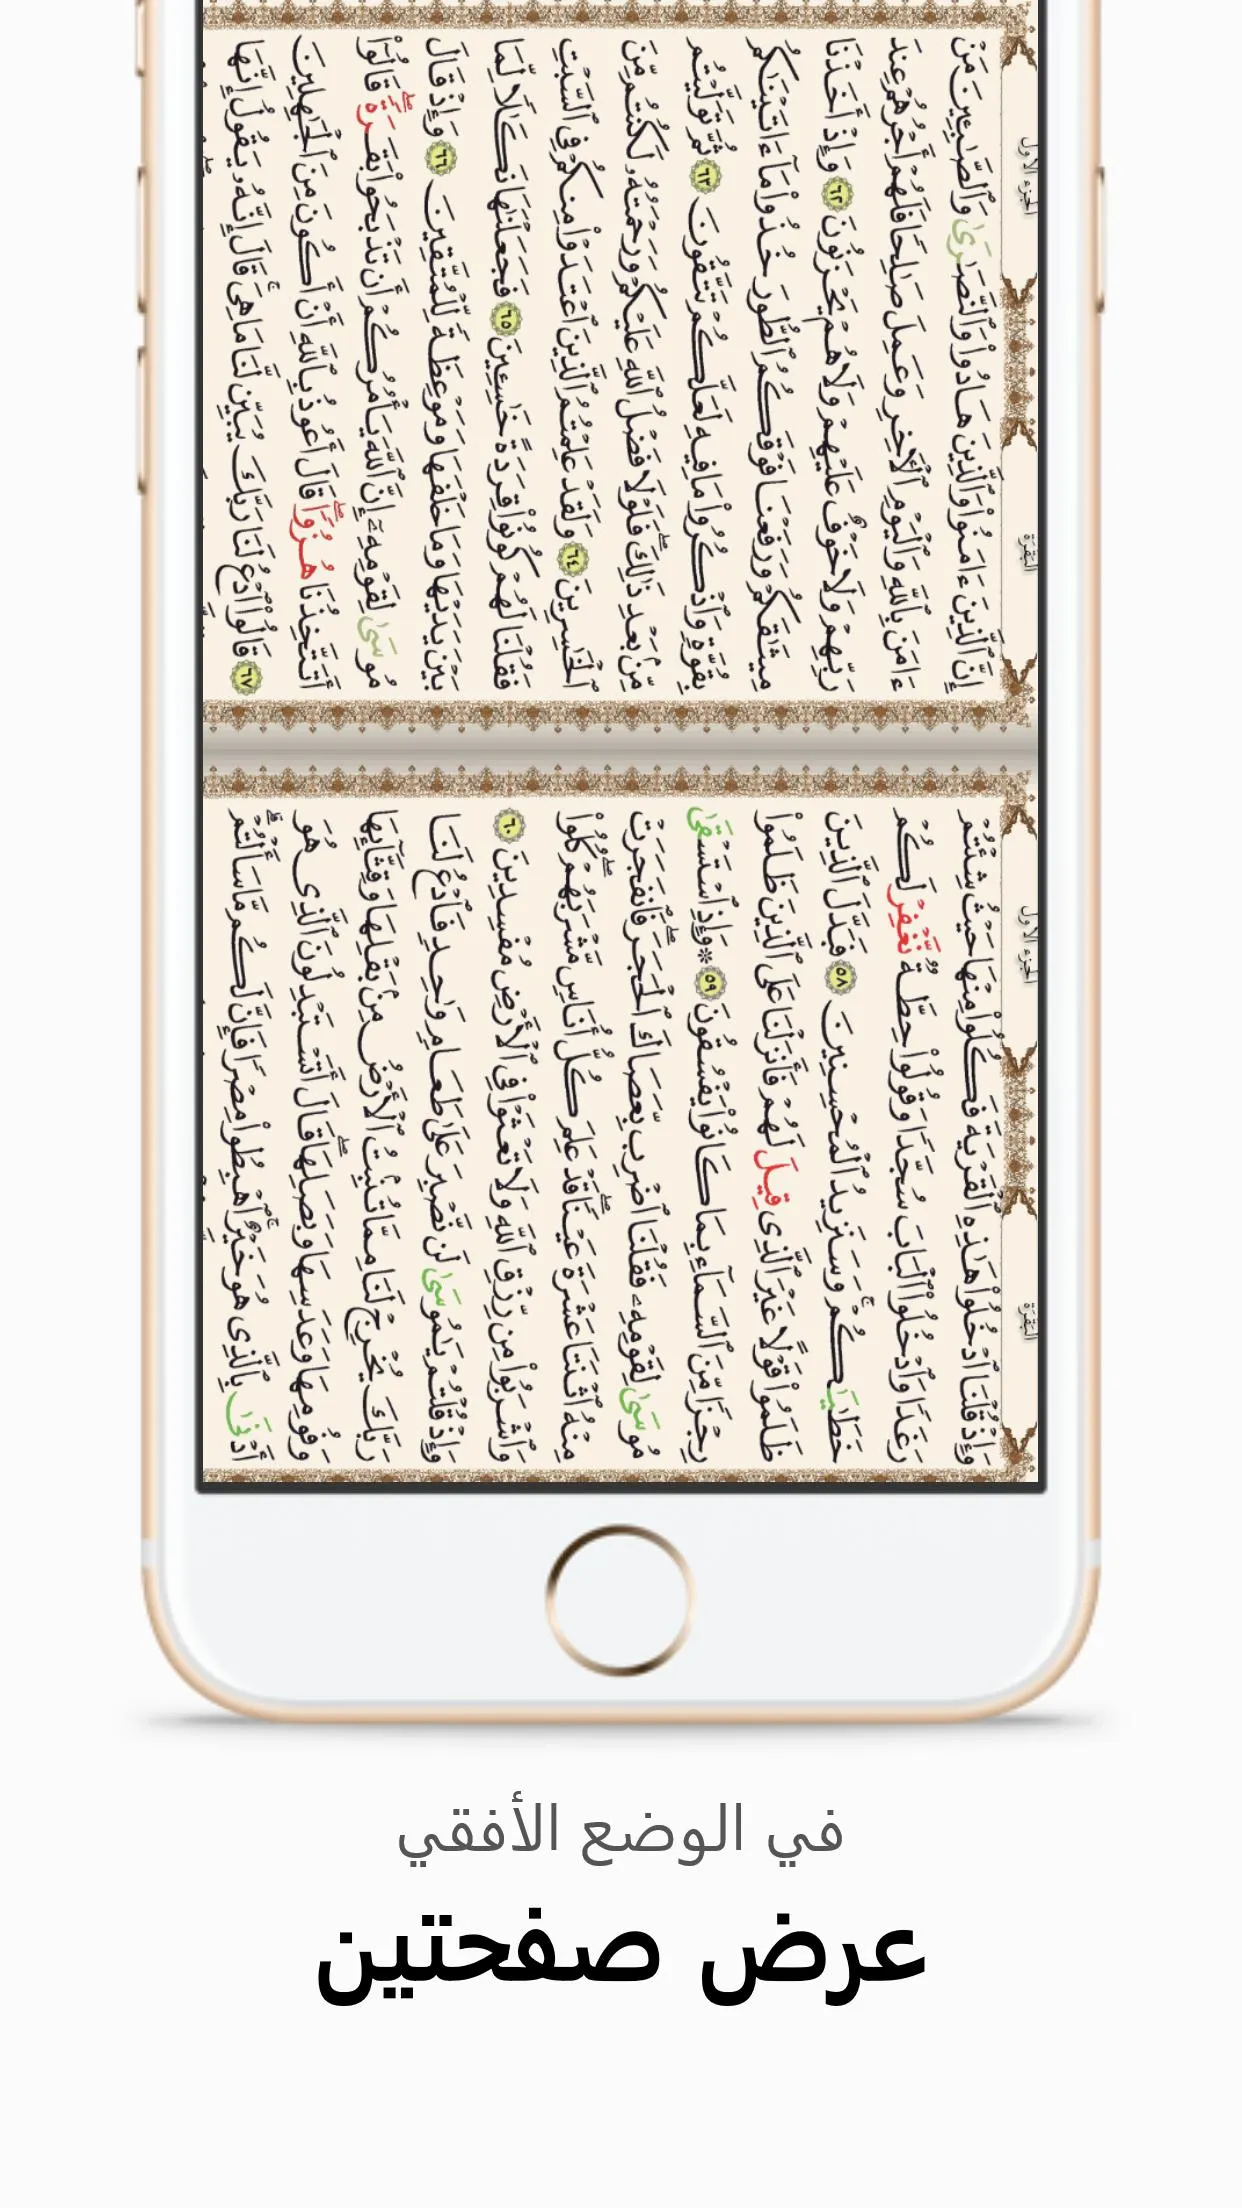 البَقَرَة
الجزء الأول
وَإِذْ قُلْنَا ٱدْخُلُوا۟ هَـٰذِهِ ٱلْقَرْيَةَ فَكُلُوا۟ مِنْهَا حَيْثُ شِئْتُمْ
رَغَدًا وَٱدْخُلُوا۟ ٱلْبَابَ سُجَّدًا وَقُولُوا۟ حِطَّةٌ نَّغْفِرْ لَكُمْ
خَطَـٰيَـٰكُمْ ۚ وَسَنَزِيدُ ٱلْمُحْسِنِينَ ٥٨ فَبَدَّلَ ٱلَّذِينَ
ظَلَمُوا۟ قَوْلًا غَيْرَ ٱلَّذِى قِيلَ لَهُمْ فَأَنزَلْنَا عَلَى ٱلَّذِينَ ظَلَمُوا۟
رِجْزًا مِّنَ ٱلسَّمَآءِ بِمَا كَانُوا۟ يَفْسُقُونَ ٥٩ ۞ وَإِذِ ٱسْتَسْقَىٰ
مُوسَىٰ لِقَوْمِهِۦ فَقُلْنَا ٱضْرِب بِّعَصَاكَ ٱلْحَجَرَ ۖ فَٱنفَجَرَتْ
مِنْهُ ٱثْنَتَا عَشْرَةَ عَيْنًا ۖ قَدْ عَلِمَ كُلُّ أُنَاسٍ مَّشْرَبَهُمْ ۖ كُلُوا۟
وَٱشْرَبُوا۟ مِن رِّزْقِ ٱللَّهِ وَلَا تَعْثَوْا۟ فِى ٱلْأَرْضِ مُفْسِدِينَ ٦٠
وَإِذْ قُلْتُمْ يَـٰمُوسَىٰ لَن نَّصْبِرَ عَلَىٰ طَعَامٍ وَٰحِدٍ فَٱدْعُ لَنَا
رَبَّكَ يُخْرِجْ لَنَا مِمَّا تُنۢبِتُ ٱلْأَرْضُ مِنۢ بَقْلِهَا وَقِثَّآئِهَا
وَفُومِهَا وَعَدَسِهَا وَبَصَلِهَا ۖ قَالَ أَتَسْتَبْدِلُونَ ٱلَّذِى هُوَ
أَدْنَىٰ بِٱلَّذِى هُوَ خَيْرٌ ۚ ٱهْبِطُوا۟ مِصْرًا فَإِنَّ لَكُم مَّا سَأَلْتُمْ ۗ
البَقَرَة
الجزء الأول
إِنَّ ٱلَّذِينَ ءَامَنُوا۟ وَٱلَّذِينَ هَادُوا۟ وَٱلنَّصَـٰرَىٰ وَٱلصَّـٰبِـِٔينَ مَنْ
ءَامَنَ بِٱللَّهِ وَٱلْيَوْمِ ٱلْـَٔاخِرِ وَعَمِلَ صَـٰلِحًا فَلَهُمْ أَجْرُهُمْ عِندَ
رَبِّهِمْ وَلَا خَوْفٌ عَلَيْهِمْ وَلَا هُمْ يَحْزَنُونَ ٦٢ وَإِذْ أَخَذْنَا
مِيثَـٰقَكُمْ وَرَفَعْنَا فَوْقَكُمُ ٱلطُّورَ خُذُوا۟ مَآ ءَاتَيْنَـٰكُم
بِقُوَّةٍ وَٱذْكُرُوا۟ مَا فِيهِ لَعَلَّكُمْ تَتَّقُونَ ٦٣ ثُمَّ تَوَلَّيْتُم
مِّنۢ بَعْدِ ذَٰلِكَ ۖ فَلَوْلَا فَضْلُ ٱللَّهِ عَلَيْكُمْ وَرَحْمَتُهُۥ لَكُنتُم مِّنَ
ٱلْخَـٰسِرِينَ ٦٤ وَلَقَدْ عَلِمْتُمُ ٱلَّذِينَ ٱعْتَدَوْا۟ مِنكُمْ فِى ٱلسَّبْتِ
فَقُلْنَا لَهُمْ كُونُوا۟ قِرَدَةً خَـٰسِـِٔينَ ٦٥ فَجَعَلْنَـٰهَا نَكَـٰلًا لِّمَا
بَيْنَ يَدَيْهَا وَمَا خَلْفَهَا وَمَوْعِظَةً لِّلْمُتَّقِينَ ٦٦ وَإِذْ قَالَ
مُوسَىٰ لِقَوْمِهِۦٓ إِنَّ ٱللَّهَ يَأْمُرُكُمْ أَن تَذْبَحُوا۟ بَقَرَةً ۖ قَالُوٓا۟
أَتَتَّخِذُنَا هُزُؤًا ۖ قَالَ أَعُوذُ بِٱللَّهِ أَنْ أَكُونَ مِنَ ٱلْجَـٰهِلِينَ
٦٧ قَالُوا۟ ٱدْعُ لَنَا رَبَّكَ يُبَيِّن لَّنَا مَا هِىَ ۚ قَالَ إِنَّهُۥ يَقُولُ إِنَّهَا
في الوضع الأفقي
عرض صفحتين